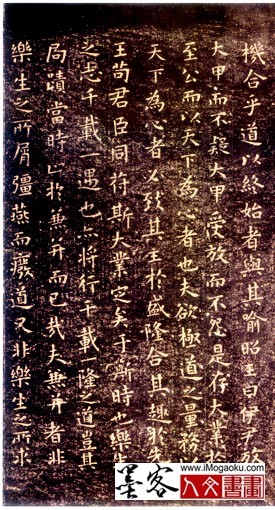 機合乎道以終始者與其喻昭王曰伊尹放
大甲而不疑大甲受放而不怨是存大業於
至公而以天下為心者也夫欲極道之量務
天下為心者必致其主於盛隆合其趣於先
王苟君臣同符斯大業定矣于斯時也樂生
之志千載一遇也亦將行千載一隆之道豈其
局蹟當時止於兼并而已哉夫兼并者非
樂生之所屑彊燕而廢道又非樂生之所求
www.iMogaoku.com
墨客
人文書畫